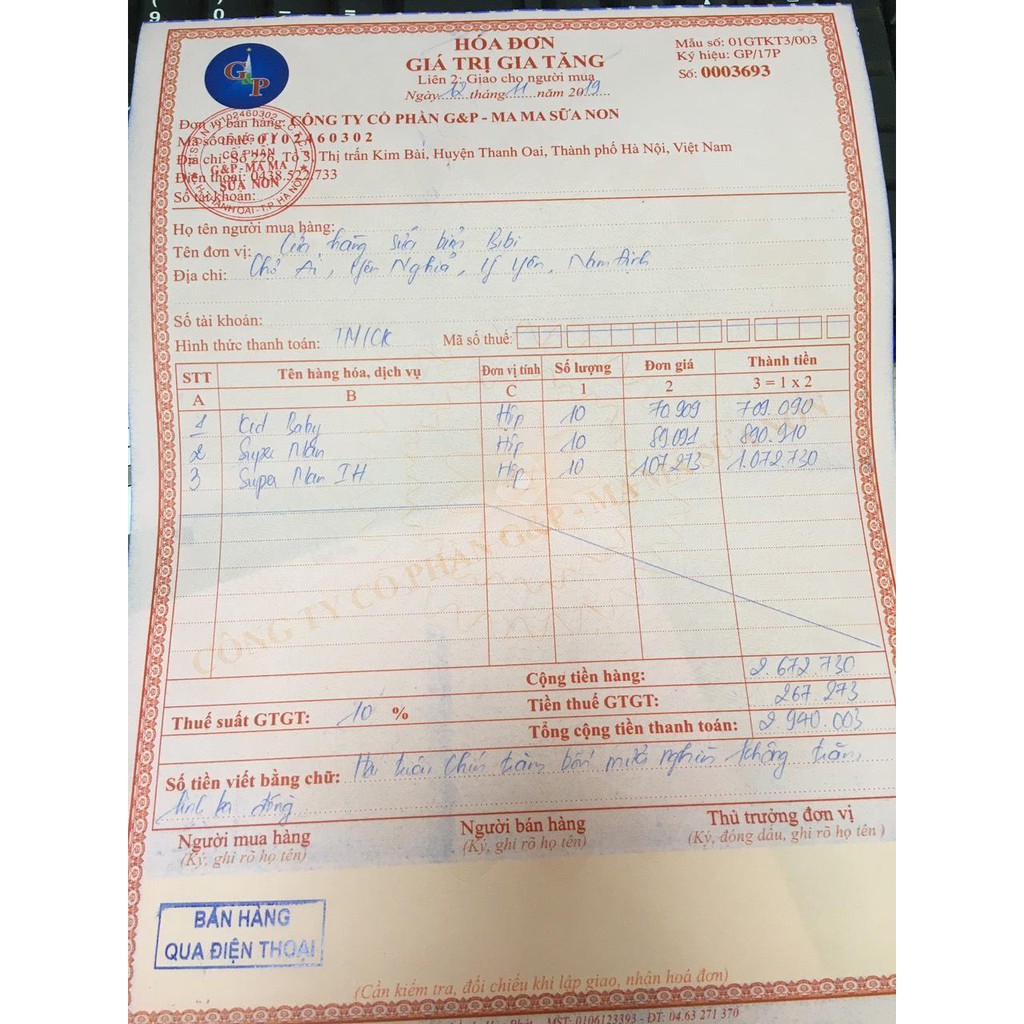 HÓA ĐƠN
GIÁ TRỊ GIA TĂNG
Liên 2: Giao cho người mua
Ngày 12 tháng 11 năm 2019
Mẫu số: 01GTKT3/003
Ký hiệu: GP/17P
Số: 0003693
G&P
Đơn vị bán hàng: CÔNG TY CỔ PHẦN G&P - MA MA SỮA NON
Mã số thuế: 0102460302
Địa chỉ: Số 226, Tổ 3, Thị trấn Kim Bài, Huyện Thanh Oai, Thành phố Hà Nội, Việt Nam
Điện thoại: 0438.522.733
Số tài khoản:
CÔNG TY
CỔ PHẦN
G&P - MA MA
SỮA NON
Họ tên người mua hàng:
Tên đơn vị: Cửa hàng sữa bỉm Bibi
Địa chỉ: Chợ Ải, Yên Nghĩa, Ý Yên, Nam Định
Số tài khoản:
Hình thức thanh toán: TM/CK Mã số thuế:
STT Tên hàng hóa, dịch vụ Đơn vị tính Số lượng Đơn giá Thành tiền
A B C 1 2 3 = 1 x 2
1 Kid Baby Hộp 10 70.909 709.090
2 Super Man Hộp 10 89.091 890.910
3 Super Man IH Hộp 10 107.273 1.072.730
CÔNG TY CỔ PHẦN G&P - MA MA SỮA NON
Cộng tiền hàng: 2.672.730
Thuế suất GTGT: 10 % Tiền thuế GTGT: 267.273
Tổng cộng tiền thanh toán: 2.940.003
Số tiền viết bằng chữ: Hai triệu, chín trăm bốn mươi nghìn không trăm
linh ba đồng
Người mua hàng Người bán hàng Thủ trưởng đơn vị
(Ký, ghi rõ họ tên) (Ký, ghi rõ họ tên) (Ký, đóng dấu, ghi rõ họ tên)
BÁN HÀNG
QUA ĐIỆN THOẠI
(Cần kiểm tra, đối chiếu khi lập giao, nhận hoá đơn)
MST: 0106123393 - ĐT: 04.63 271 370